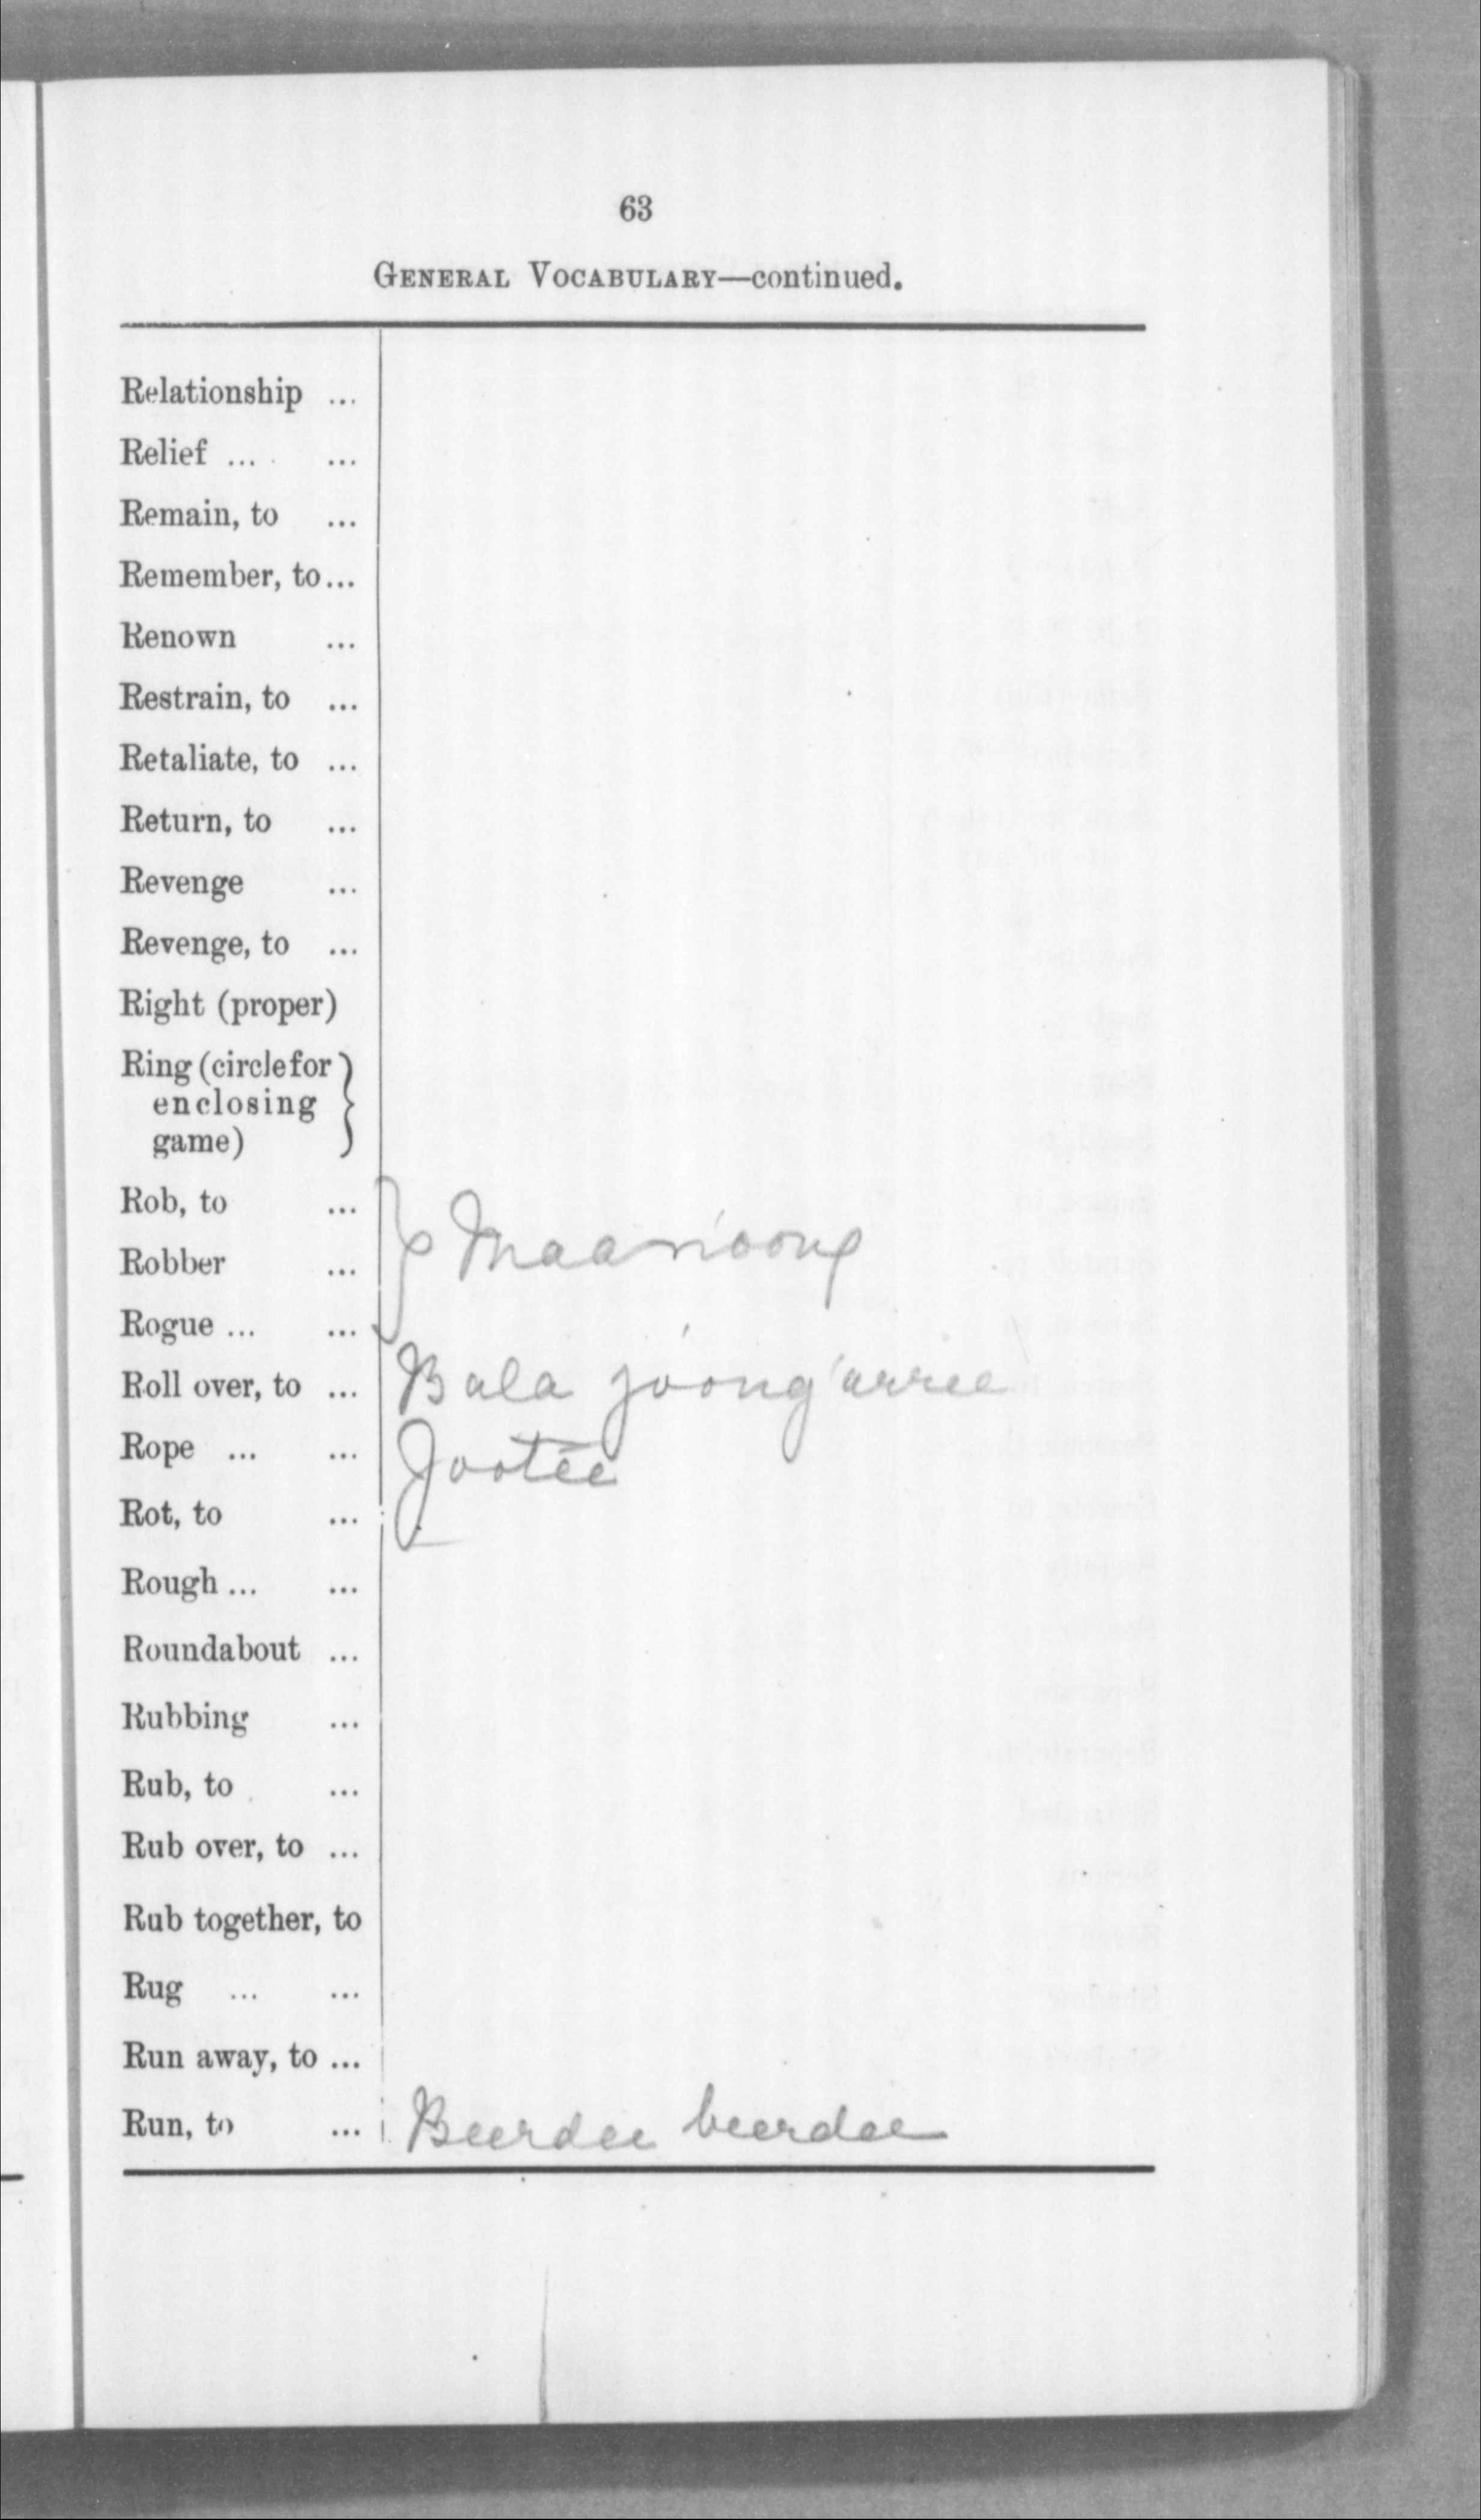 63
GENERAL VOCABULARY—continued.
Relationship ...
Relief ... ...
Remain, to ...
Remember, to...
Renown ...
Restrain, to ...
Retaliate, to ...
Return, to ...
Revenge ...
Revenge, to ...
Right (proper)
Ring (circle for
enclosing
game)
Rob, to ...
Robber ... } Maanoong
Rogue ... ...
Roll over, to ... Bala joong'arree
Rope ... ... Jootee
Rot, to ...
Rough ... ...
Roundabout ...
Rubbing ...
Rub, to ...
Rub over, to ...
Rub together, to
Rug ... ...
Run away, to ...
Run, to ... Beerdee beerdee